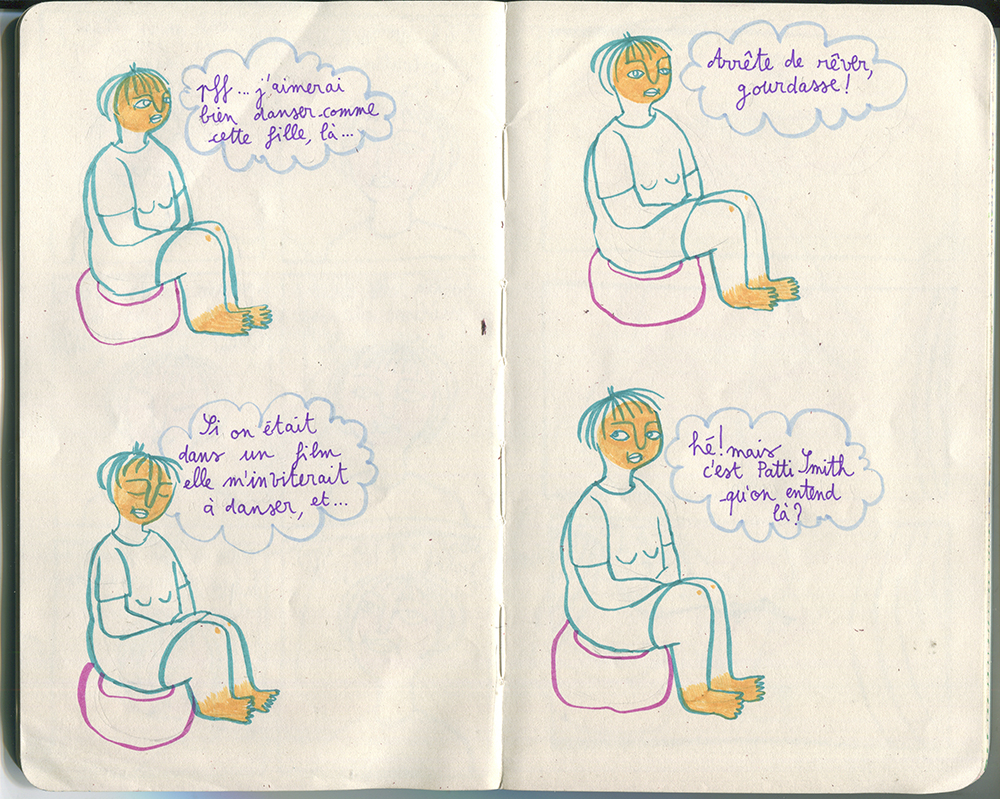 pff... j'aimerai
bien danser comme
cette fille, là...
Si on était
dans un film
elle m'inviterait
à danser, et...
Arrête de rêver,
gourdasse!
hé! mais
c'est Patti Smith
qu'on entend
là?